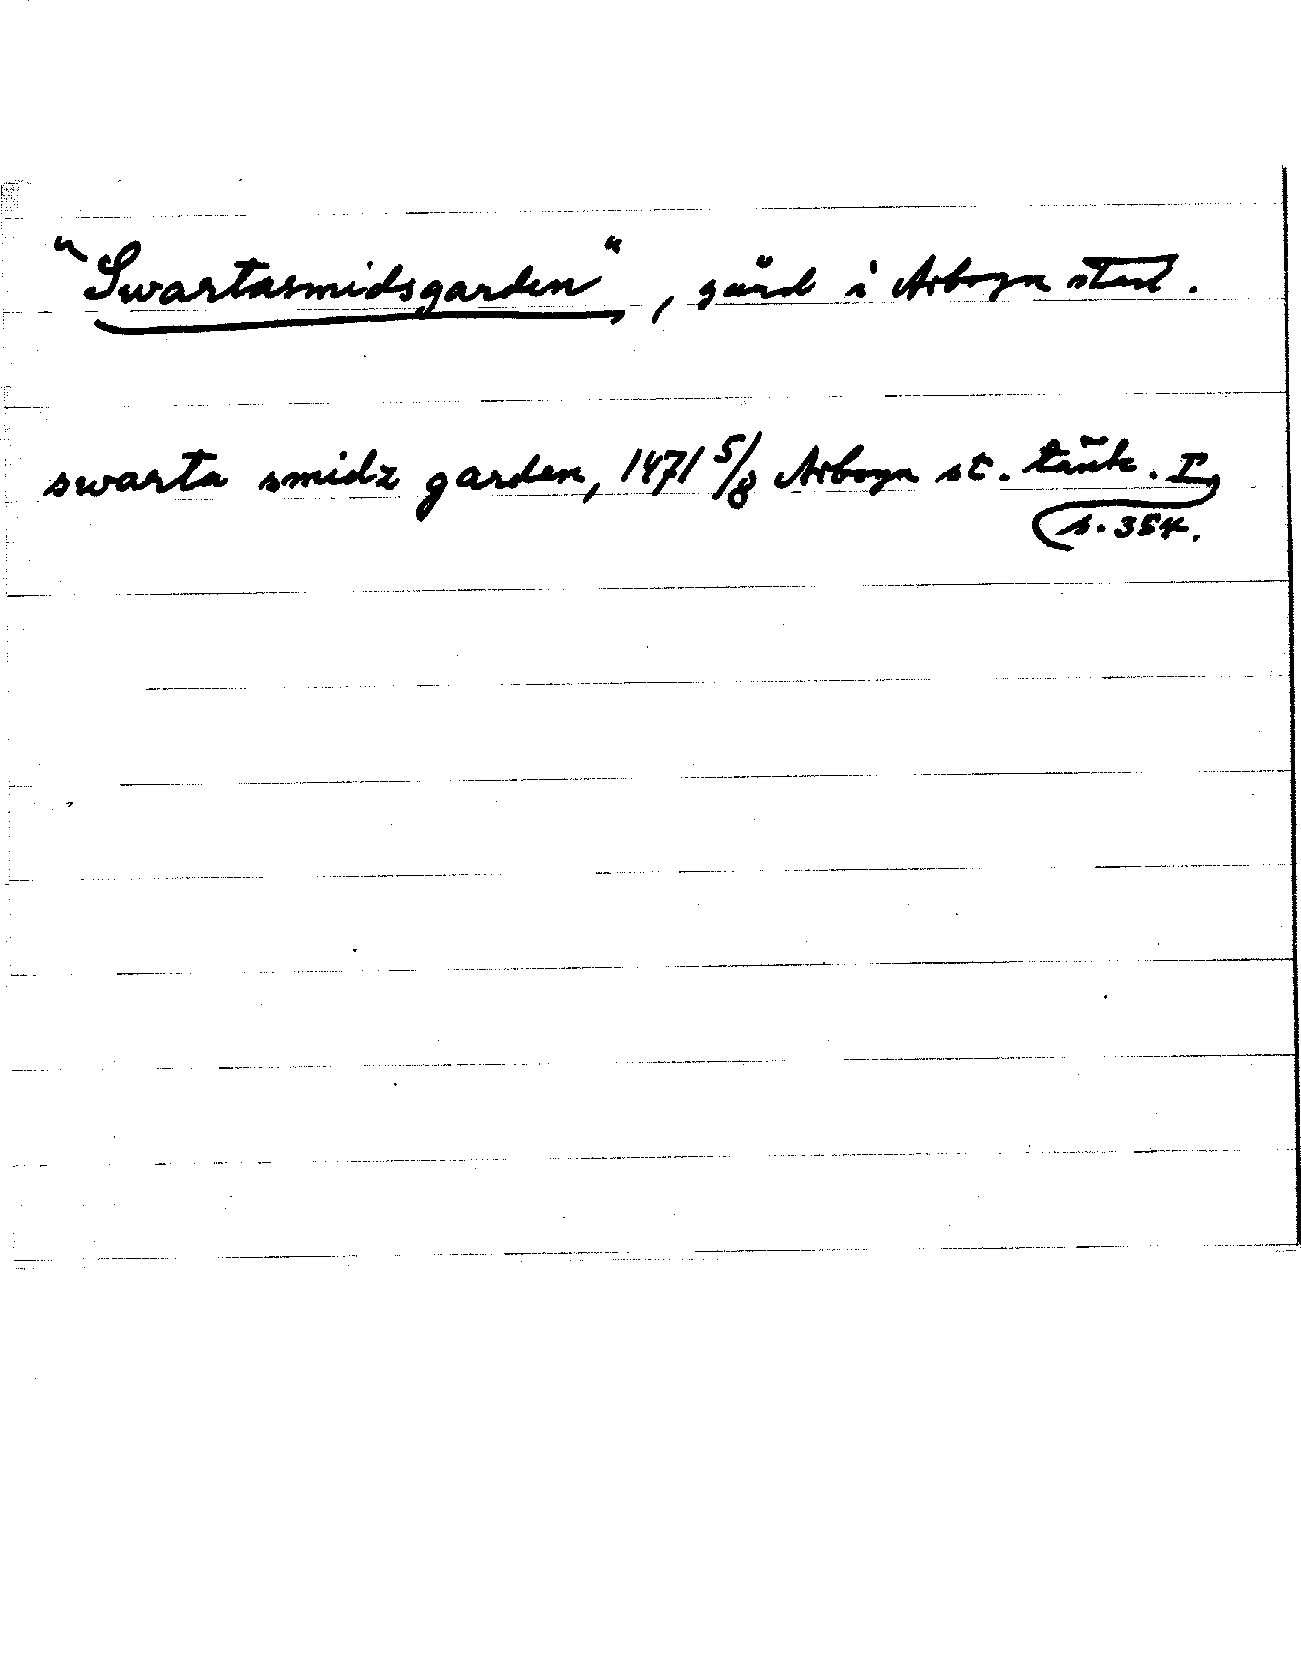 "Swartasmidsgarden", gård i Arboga stad.
swarta smidz garden, 1471 5/8 Arboga st. tänk. I,
s. 354.